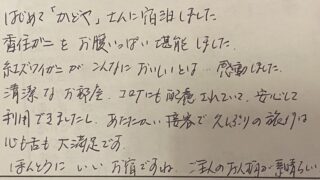 はじめて「かどや」さんに宿泊しました
香住ガニをお腹いっぱい堪能しました.
紅ズワイガニがこんなにおいしいとは 感動しました.
清潔なお部屋. コロナにも配慮されていて. 安心して
利用できましたし. あたたかい接客で久しぶりの旅行は
心も舌も大満足です.
ほんとうにいいお宿ですね. ご主人の お人柄が素晴らしい